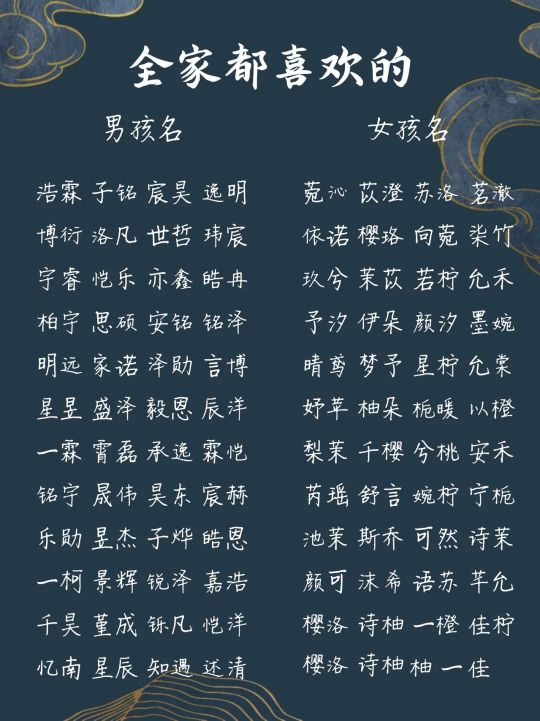 全家都喜欢的
男孩名 女孩名
浩霖 子铭 宸昊 逸明 菀沁 苡澄 苏洛 茗澈
博衍 洛凡 世哲 玮宸 依诺 樱珞 向菀 柒竹
宇睿 恺乐 亦鑫 皓冉 玖兮 茉苡 若柠 允禾
柏宇 思硕 安铭 铭泽 予汐 伊朵 颜汐 墨婉
明远 家诺 泽勋 言博 晴鸢 梦予 星柠 允棠
星昱 盛泽 毅恩 辰洋 妤苹 柚朵 栀暖 以橙
一霖 霄磊 承逸 霖恺 梨茉 千樱 兮桃 安禾
铭宇 晟伟 昊东 宸赫 芮瑶 舒言 婉柠 宁栀
乐勋 昱杰 子烨 皓恩 池茉 斯乔 可然 诗茉
一柯 景辉 锐泽 嘉浩 颜可 沫希 语苏 芊允
千昊 董成 铄凡 恺洋 樱洛 诗柚 一橙 佳柠
忆南 星辰 知遇 述清 樱洛 诗柚 柚 一佳